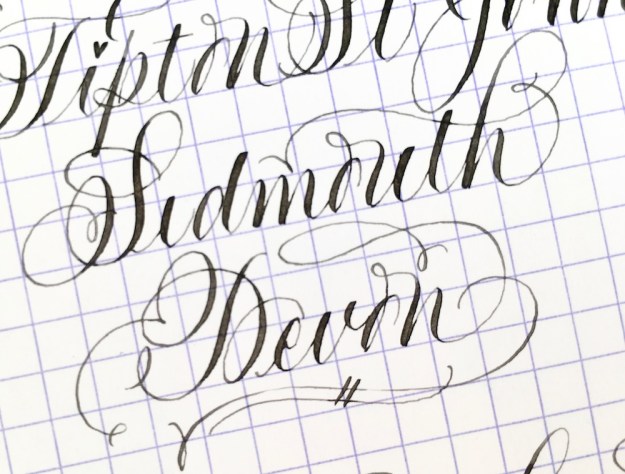 Tipton St John
Sidmouth
Devon